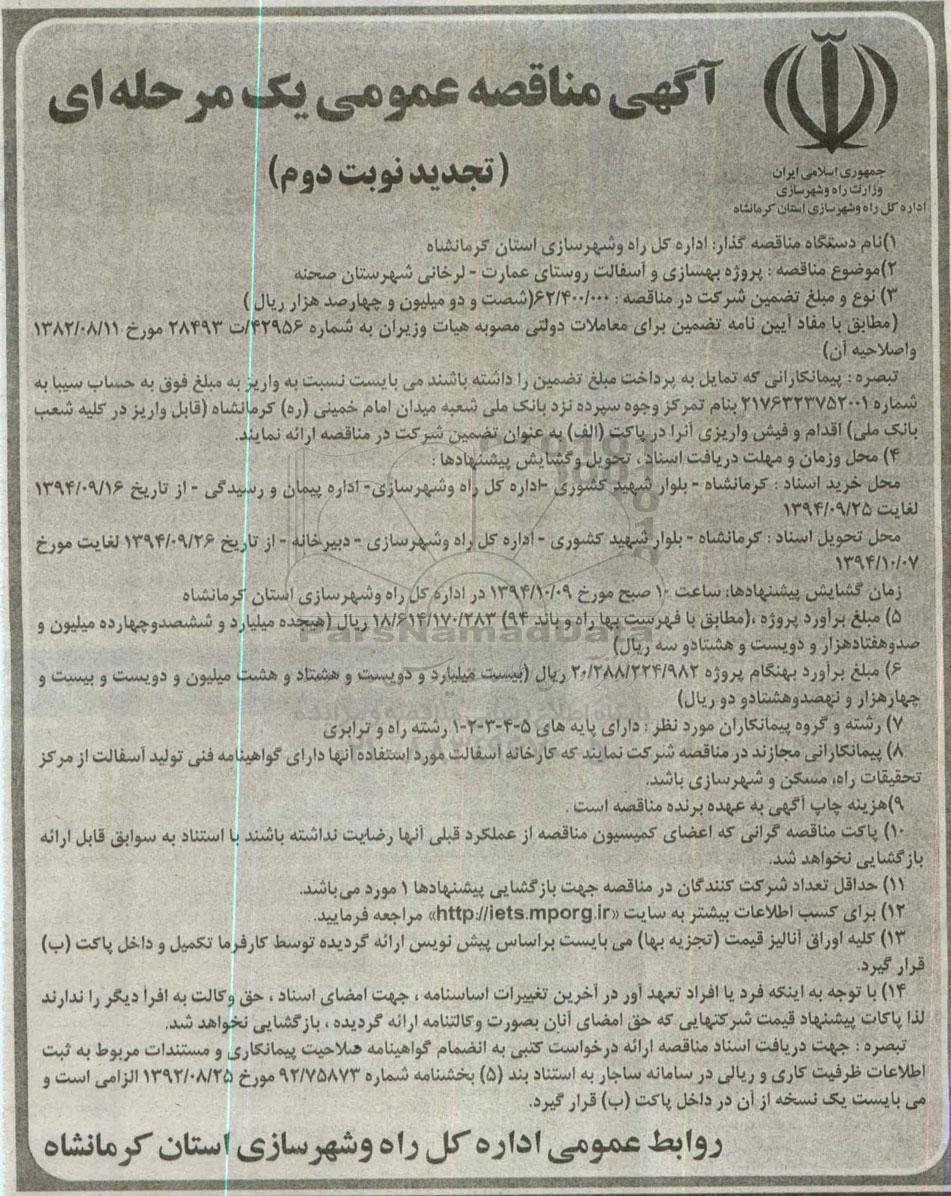 آگهی مناقصه عمومی یک مرحله ای
(تجدید نوبت دوم)
جمهوری اسلامی ایران
وزارت راه وشهرسازی
اداره کل راه وشهرسازی استان کرمانشاه
۱)نام دستگاه مناقصه گذار: اداره کل راه وشهرسازی استان کرمانشاه
۲)موضوع مناقصه : پروژه بهسازی و آسفالت روستای عمارت - لرخانی شهرستان صحنه
۳) نوع و مبلغ تضمین شرکت در مناقصه : ۶۲/۴۰۰/۰۰۰(شصت و دو میلیون و چهارصد هزار ریال )
(مطابق با مفاد آیین نامه تضمین برای معاملات دولتی مصوبه هیات وزیران به شماره ۴۲۹۵۶/ت ۲۸۴۹۳ مورخ ۱۳۸۲/۰۸/۱۱
واصلاحیه آن)
تبصره : پیمانکارانی که تمایل به پرداخت مبلغ تضمین را داشته باشند می بایست نسبت به واریز به مبلغ فوق به حساب سیبا به
شماره ۲۱۷۶۳۳۳۷۵۲۰۰۱ بنام تمرکز وجوه سپرده نزد بانک ملی شعبه میدان امام خمینی (ره) کرمانشاه (قابل واریز در کلیه شعب
بانک ملی) اقدام و فیش واریزی آنرا در پاکت (الف) به عنوان تضمین شرکت در مناقصه ارائه نمایند.
۴) محل وزمان و مهلت دریافت اسناد ، تحویل وگشایش پیشنهادها :
محل خرید اسناد : کرمانشاه - بلوار شهید کشوری -اداره کل راه وشهرسازی- اداره پیمان و رسیدگی - از تاریخ ۱۳۹۴/۰۹/۱۶
لغایت ۱۳۹۴/۰۹/۲۵
محل تحویل اسناد : کرمانشاه - بلوار شهید کشوری - اداره کل راه وشهرسازی - دبیرخانه - از تاریخ ۱۳۹۴/۰۹/۲۶ لغایت مورخ
۱۳۹۴/۱۰/۰۷
زمان گشایش پیشنهادها: ساعت ۱۰ صبح مورخ ۱۳۹۴/۱۰/۰۹ در اداره کل راه وشهرسازی استان کرمانشاه
۵) مبلغ برآورد پروژه ،(مطابق با فهرست بها راه و باند ۹۴) ۱۸/۶۱۴/۱۷۰/۲۸۳ ریال (هیجده میلیارد و ششصدوچهارده میلیون و
صدوهفتادهزار و دویست و هشتادو سه ریال)
۶) مبلغ برآورد بهنگام پروژه ۲۰/۲۸۸/۲۲۴/۹۸۲ ریال (بیست میلیارد و دویست و هشتاد و هشت میلیون و دویست و بیست و
چهارهزار و نهصدوهشتادو دو ریال)
۷) رشته و گروه پیمانکاران مورد نظر : دارای پایه های ۵-۴-۳-۲-۱ رشته راه و ترابری
۸) پیمانکارانی مجازند در مناقصه شرکت نمایند که کارخانه آسفالت مورد استفاده آنها دارای گواهینامه فنی تولید آسفالت از مرکز
تحقیقات راه، مسکن و شهرسازی باشد.
۹)هزینه چاپ آگهی به عهده برنده مناقصه است .
۱۰) پاکت مناقصه گرانی که اعضای کمیسیون مناقصه از عملکرد قبلی آنها رضایت نداشته باشند با استناد به سوابق قابل ارائه
بازگشایی نخواهد شد.
۱۱) حداقل تعداد شرکت کنندگان در مناقصه جهت بازگشایی پیشنهادها ۱ مورد می‌باشد.
۱۲) برای کسب اطلاعات بیشتر به سایت «http://iets.mporg.ir» مراجعه فرمایید.
۱۳) کلیه اوراق آنالیز قیمت (تجزیه بها) می بایست براساس پیش نویس ارائه گردیده توسط کارفرما تکمیل و داخل پاکت (ب)
قرار گیرد.
۱۴) با توجه به اینکه فرد یا افراد تعهد آور در آخرین تغییرات اساسنامه ، جهت امضای اسناد ، حق وکالت به افرا دیگر را ندارند
لذا پاکات پیشنهاد قیمت شرکتهایی که حق امضای آنان بصورت وکالتنامه ارائه گردیده ، بازگشایی نخواهد شد.
تبصره : جهت دریافت اسناد مناقصه ارائه درخواست کتبی به انضمام گواهینامه صلاحیت پیمانکاری و مستندات مربوط به ثبت
اطلاعات ظرفیت کاری و ریالی در سامانه ساجار به استناد بند (۵) بخشنامه شماره ۹۲/۷۵۸۷۳ مورخ ۱۳۹۲/۰۸/۲۵ الزامی است و
می بایست یک نسخه از آن در داخل پاکت (ب) قرار گیرد.
روابط عمومی اداره کل راه وشهرسازی استان کرمانشاه
ParsNamadData